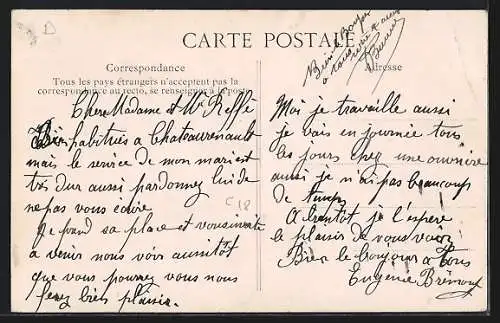 CARTE POSTALE
Bien le bonjour
Correspondance
Tous les pays étrangers n'acceptent pas la
correspondance au recto, se renseigner à la poste
Adresse
Chere Madame et Mr Reffé
Bien habitués a Chateaurenault
mais le service de mon mari est
tres dur aussi pardonnez lui de
ne pas vous écrire
Je prend sa place et vous invite
a venir nous voir aussitôt
que vous pourrez vous nous
ferez bien plaisir.
C18
Moi je travaille aussi
je vais en journée tous
les jours chez une ouvrière
aussi je n'ai pas beaucoup
de temps
A bientot je l'espère
le plaisir de vous voir
Bien le bonjour a tous
Eugenie